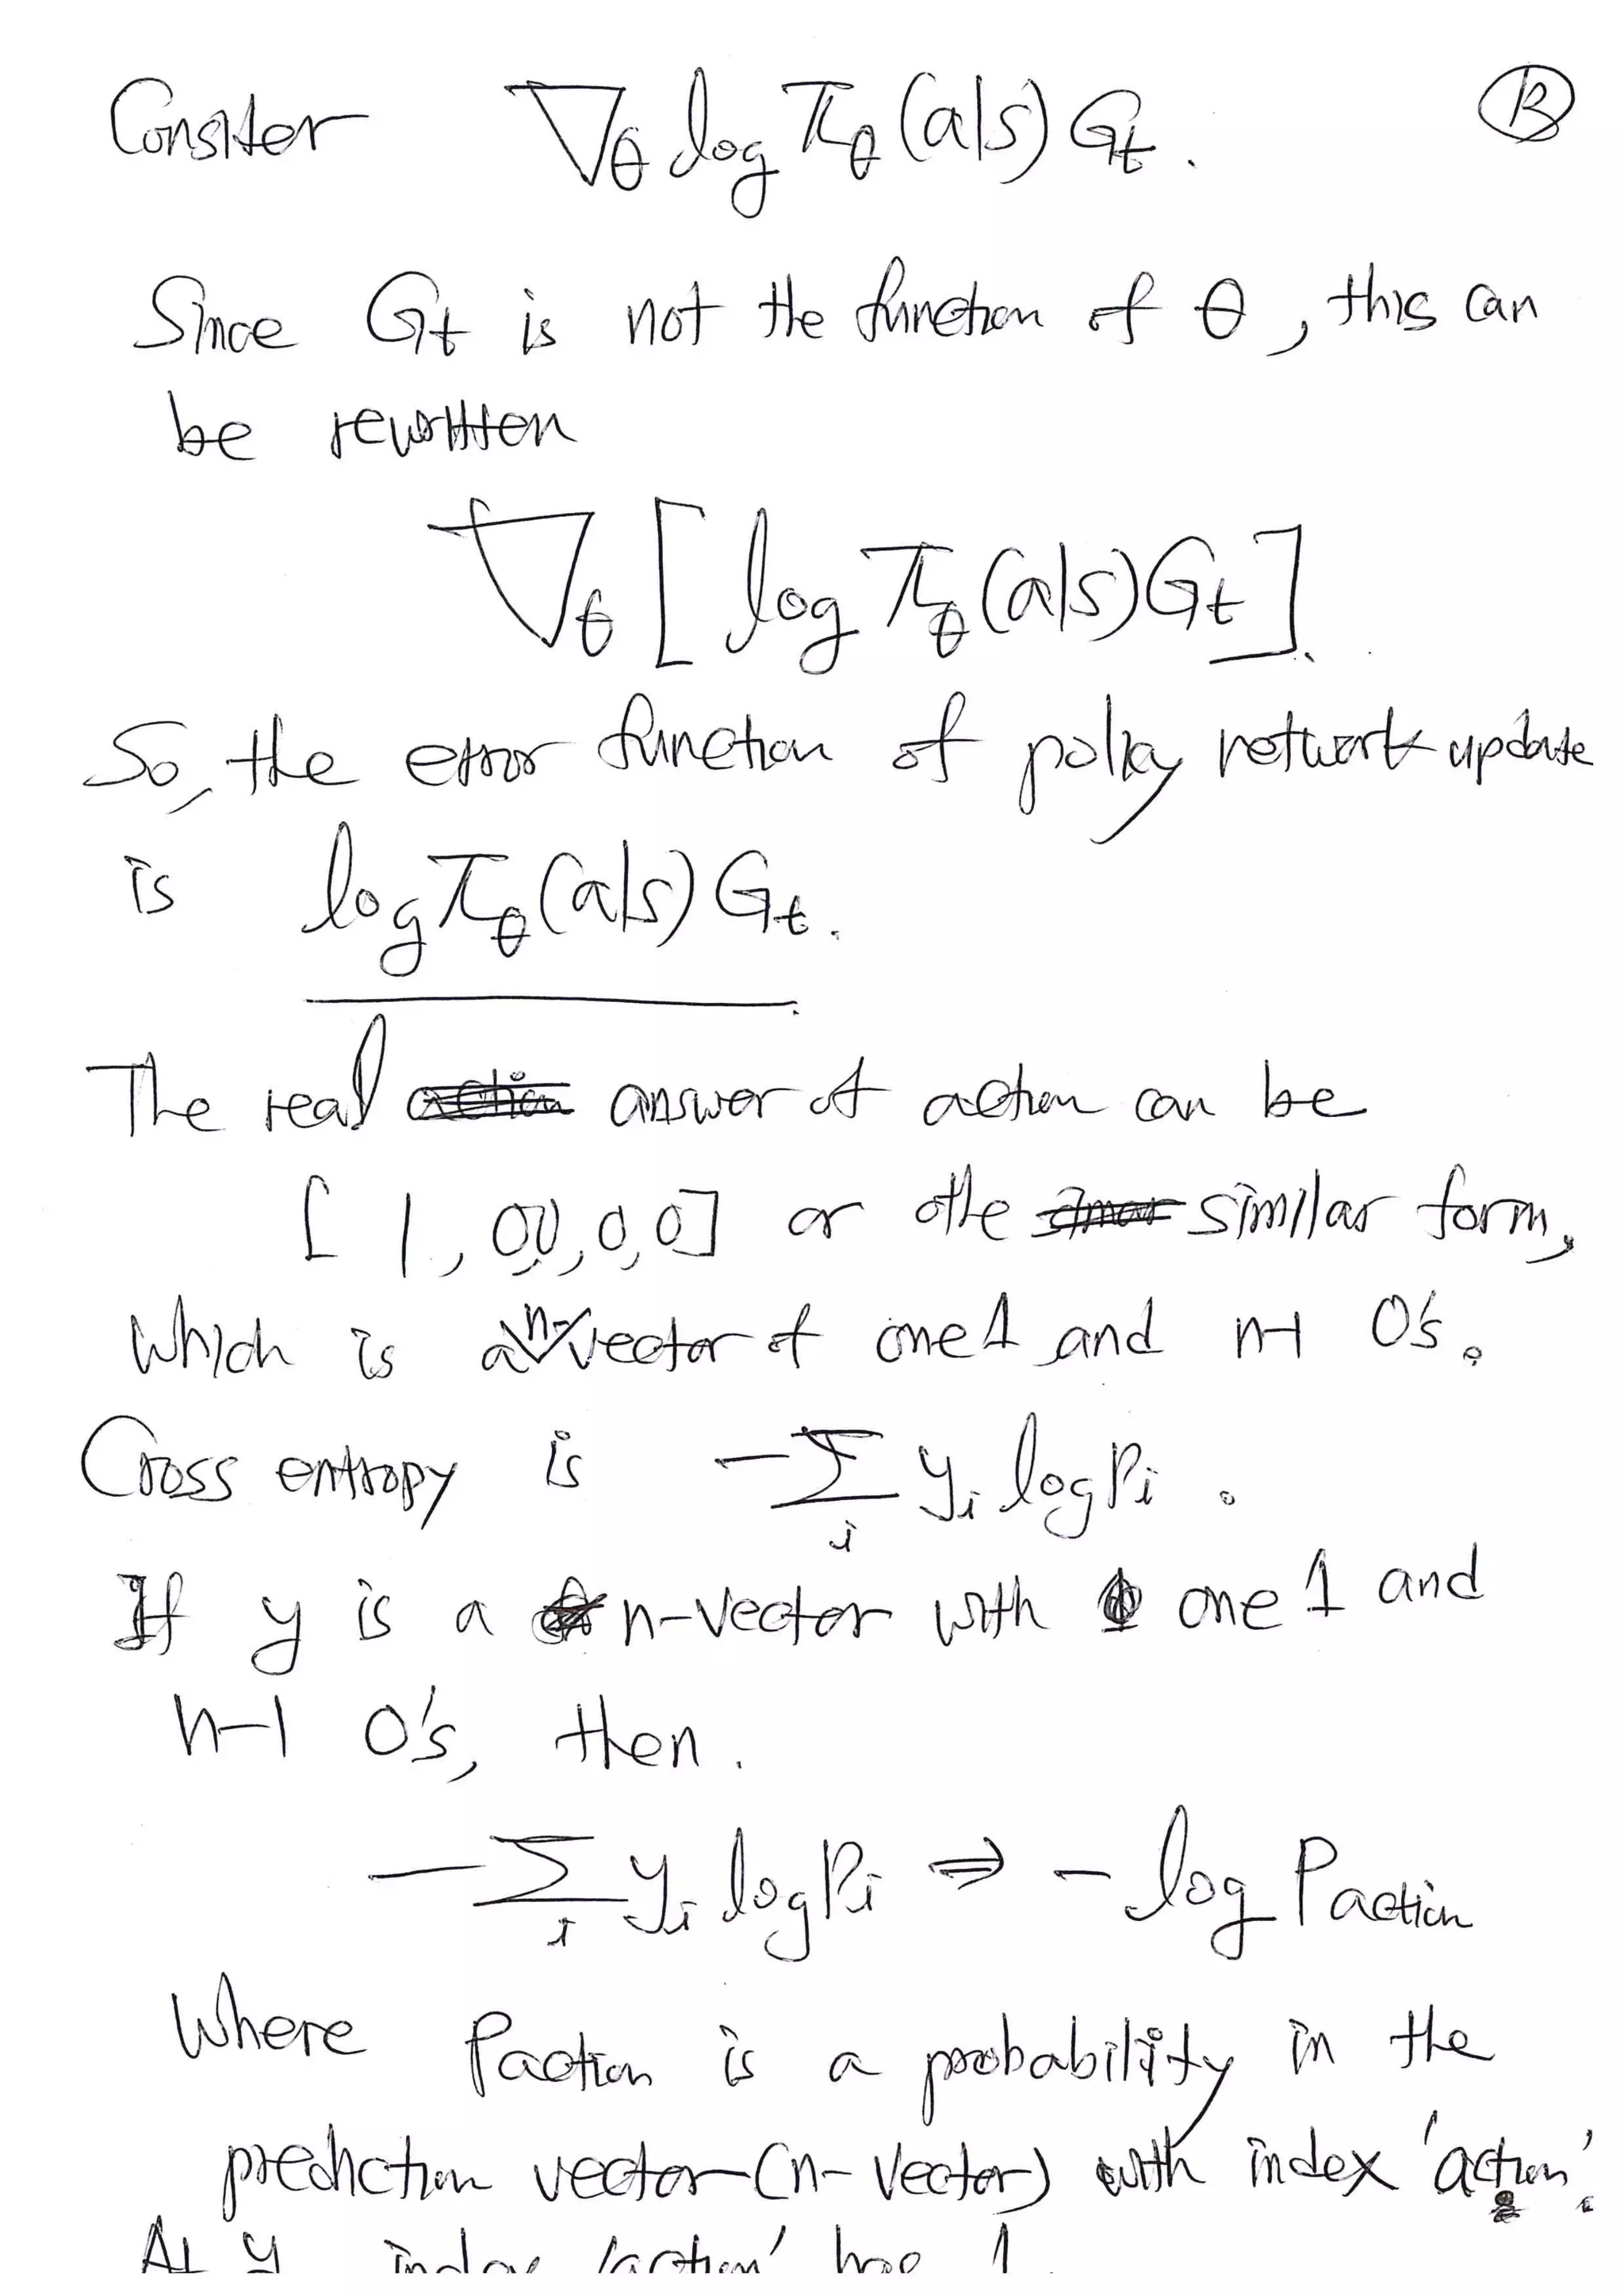 Consider ∇θ log πθ(a|s) Gt. ⑬
Since Gt is not the function of θ, this can
be rewritten
∇θ [log πθ(a|s) Gt].
So, the error function of policy network update
is log πθ(a|s) Gt.
The real answer of action can be
[1, 0, 0, 0, 0] or the similar form,
which is a n-vector of one 1 and n-1 0's.
Cross entropy is -Σi yi log Pi.
If y is a n-vector with one 1 and
n-1 0's, then.
-Σi yi log Pi ⇒ -log Paction
Where Paction is a probability in the
prediction vector (n-vector) with index 'action'.
At y index 'action' has 1